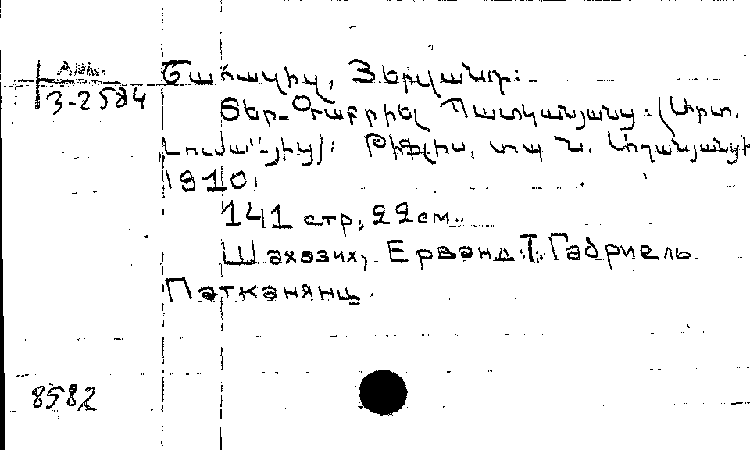 Арм.
3-2584
Շահազիզ, Յերվանդ։
Տեր-Գաբրիել Պատկանյանց։ (Արտ.
Լումայից)։ Թիֆլիս, տպ. Ն. Աղանյանցի
1910։
141 стр, 22см.
Шахазиз, Ерванд. Т. Габриель
Патканянц.
8582